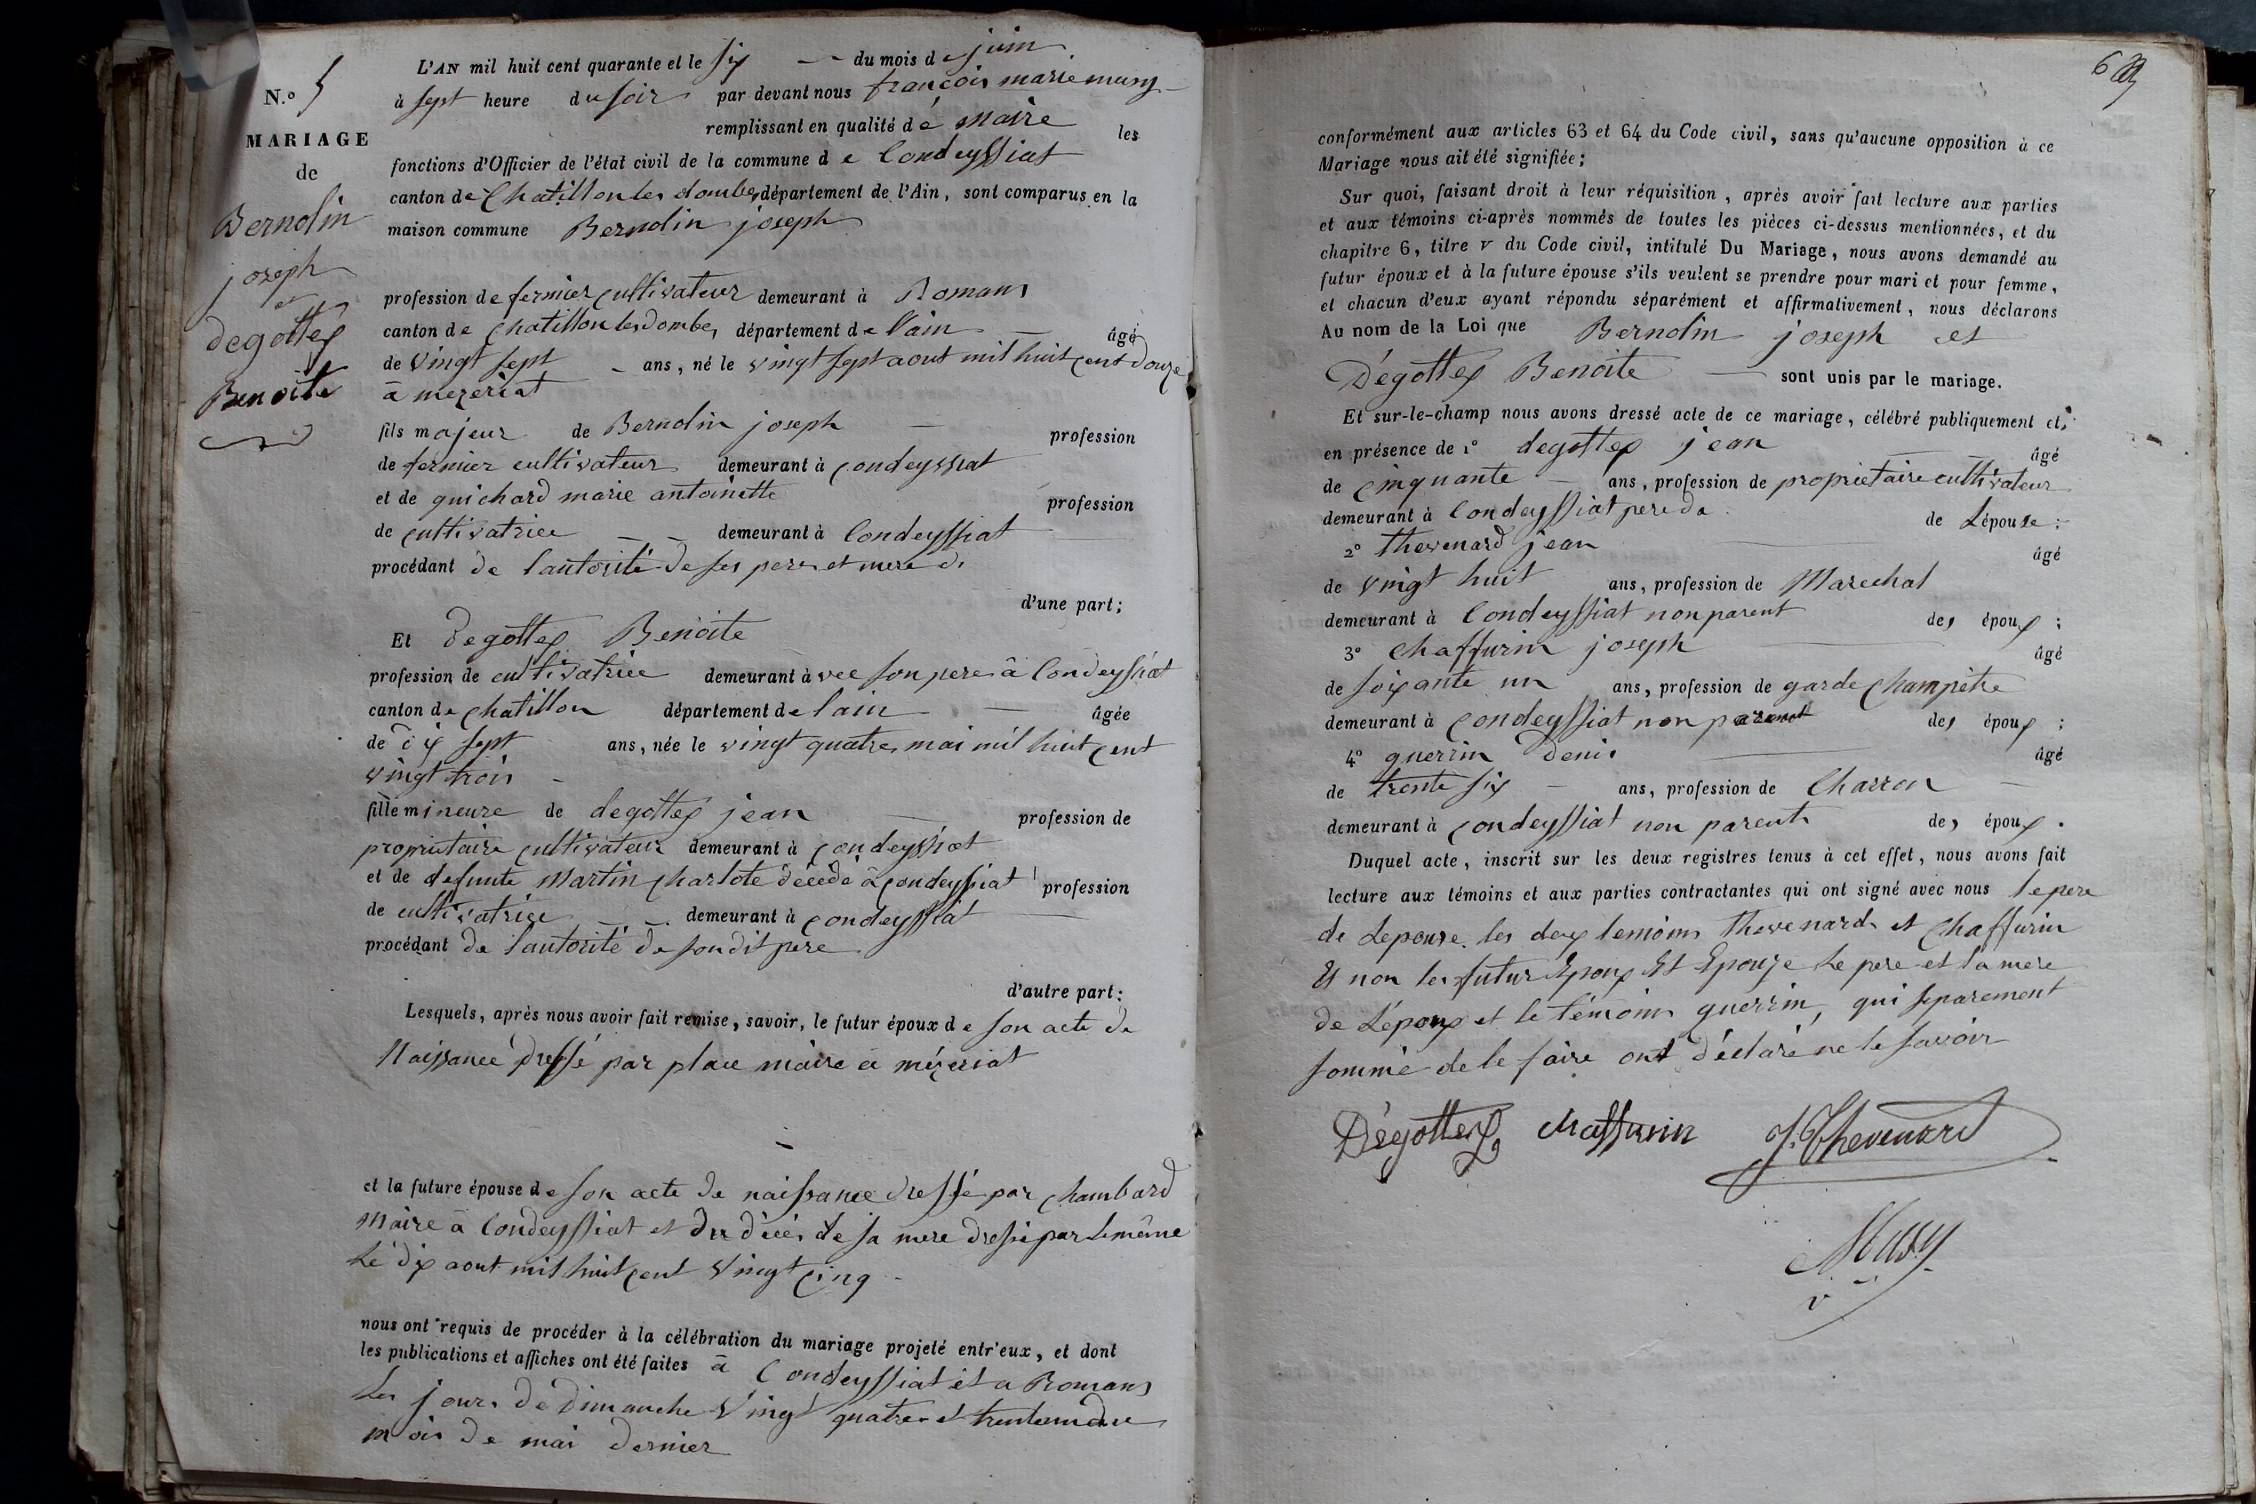 N.º 5
MARIAGE
de
Bernolin
joseph
et
degottex
Benoite
L'AN mil huit cent quarante et le six du mois de juin
à sept heure du soir par devant nous françois marie
remplissant en qualité dé maire les
fonctions d'Officier de l'état civil de la commune de Condeyssiat
canton de Chatillon les dombes département de l'Ain, sont comparus en la
maison commune Bernolin joseph
profession de fermier cultivateur demeurant à Romans
canton de chatillon les Dombes département de l'ain âgé
de vingt sept ans, né le vingt sept aout mil huit cent douze
à mezeriat
fils majeur de Bernolin joseph profession
de fermier cultivateur demeurant à condeyssiat
et de guichard marie antoinette profession
de cultivatrice demeurant à Condeyssiat
procédant de l'autorité de ses pere et mere
d'une part;
Et degottex Benoite
profession de cultivatrice demeurant avec son pere à Condeyssiat
canton de chatillon département de lain âgée
de dix sept ans, née le vingt quatre mai mil huit cent
vingt trois
fille mineure de degottex jean profession de
proprietaire cultivateur demeurant à condeyssiat
et de defunte Martin charlote décédé à condeyssiat profession
de cultivatrice demeurant à condeyssiat
procédant de l'autorité de son dit pere
d'autre part:
Lesquels, après nous avoir fait remise, savoir, le futur époux de son acte de
Naissance dressé par place maire à mézeriat
et la future épouse de son acte de naissance dressé par chambard
Maire à Condeyssiat et du décès de sa mere dressé par le même
Le dix aout mil huit cent vingt cinq
nous ont requis de procéder à la célébration du mariage projeté entr'eux, et dont
les publications et affiches ont été faites à Condeyssiat et a Romans
Les jours de Dimanche vingt quatre et trente un du
mois de mai dernier
6
conformément aux articles 63 et 64 du Code civil, sans qu'aucune opposition à ce
Mariage nous ait été signifiée;
Sur quoi, faisant droit à leur réquisition, après avoir fait lecture aux parties
et aux témoins ci-après nommés de toutes les pièces ci-dessus mentionnées, et du
chapitre 6, titre v du Code civil, intitulé Du Mariage, nous avons demandé au
futur époux et à la future épouse s'ils veulent se prendre pour mari et pour femme,
et chacun d'eux ayant répondu séparément et affirmativement, nous déclarons
Au nom de la Loi que Bernolin joseph et
Dégottex Benoite sont unis par le mariage.
Et sur-le-champ nous avons dressé acte de ce mariage, célébré publiquement et
en présence de 1º degottex jean âgé
de cinquante ans, profession de proprietaire cultivateur
demeurant à Condeyssiat pere de de Lépouse;
2º thevenard jean âgé
de vingt huit ans, profession de Marechal
demeurant à Condeyssiat non parent des époux;
3º chaffurin joseph âgé
de soixante un ans, profession de garde champêtre
demeurant à condeyssiat non parent des époux;
4º guerrin denis âgé
de trente six ans, profession de Charron
demeurant à condeyssiat non parent des époux.
Duquel acte, inscrit sur les deux registres tenus à cet effet, nous avons fait
lecture aux témoins et aux parties contractantes qui ont signé avec nous le pere
de Lepouse les deux temoins thevenard et Chaffurin
Et non les futur Epoux Et Epouze Le pere et la mere
de Lépoux et le témoins guerrin, qui separement
sommé de le faire ont déclaré ne le savoir
Dégottex chaffurin J. Thevenard